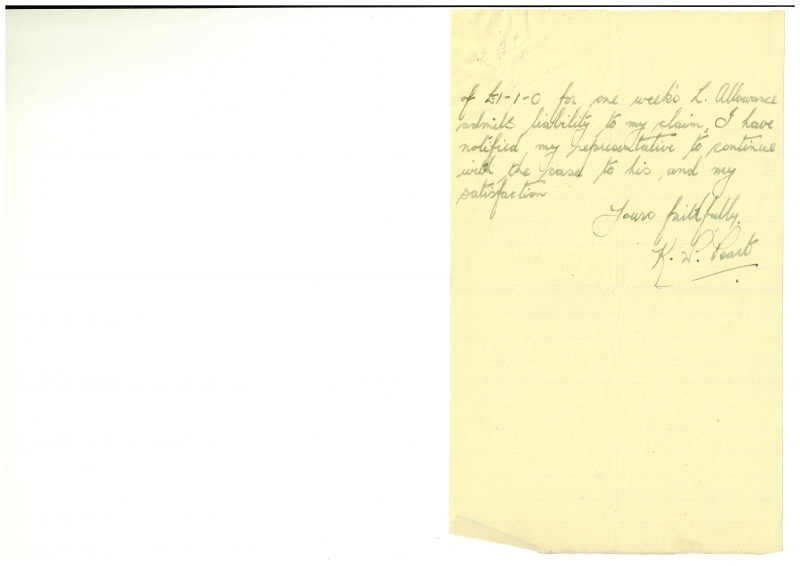 of £1-1-0 for one week's L. Allowance
admits liability to my claim, I have
notified my representative to continue
with the case to his and my
satisfaction
Yours faithfully,
K. W. Peart